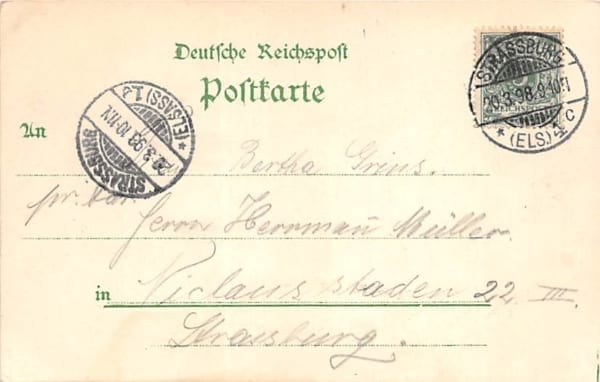 Deutsche Reichspost
Postkarte
STRASSBURG
20.3.98.9-10V.
*(ELS.)4c
REICHSPOST
STRASSBURG
20.3.98.10-11V.
*(ELSASS)1.d
An
Bertha Grins.
pr. Adr.
Herrn Herrman Müller
in Niclausstaden 22 III
Strassburg.